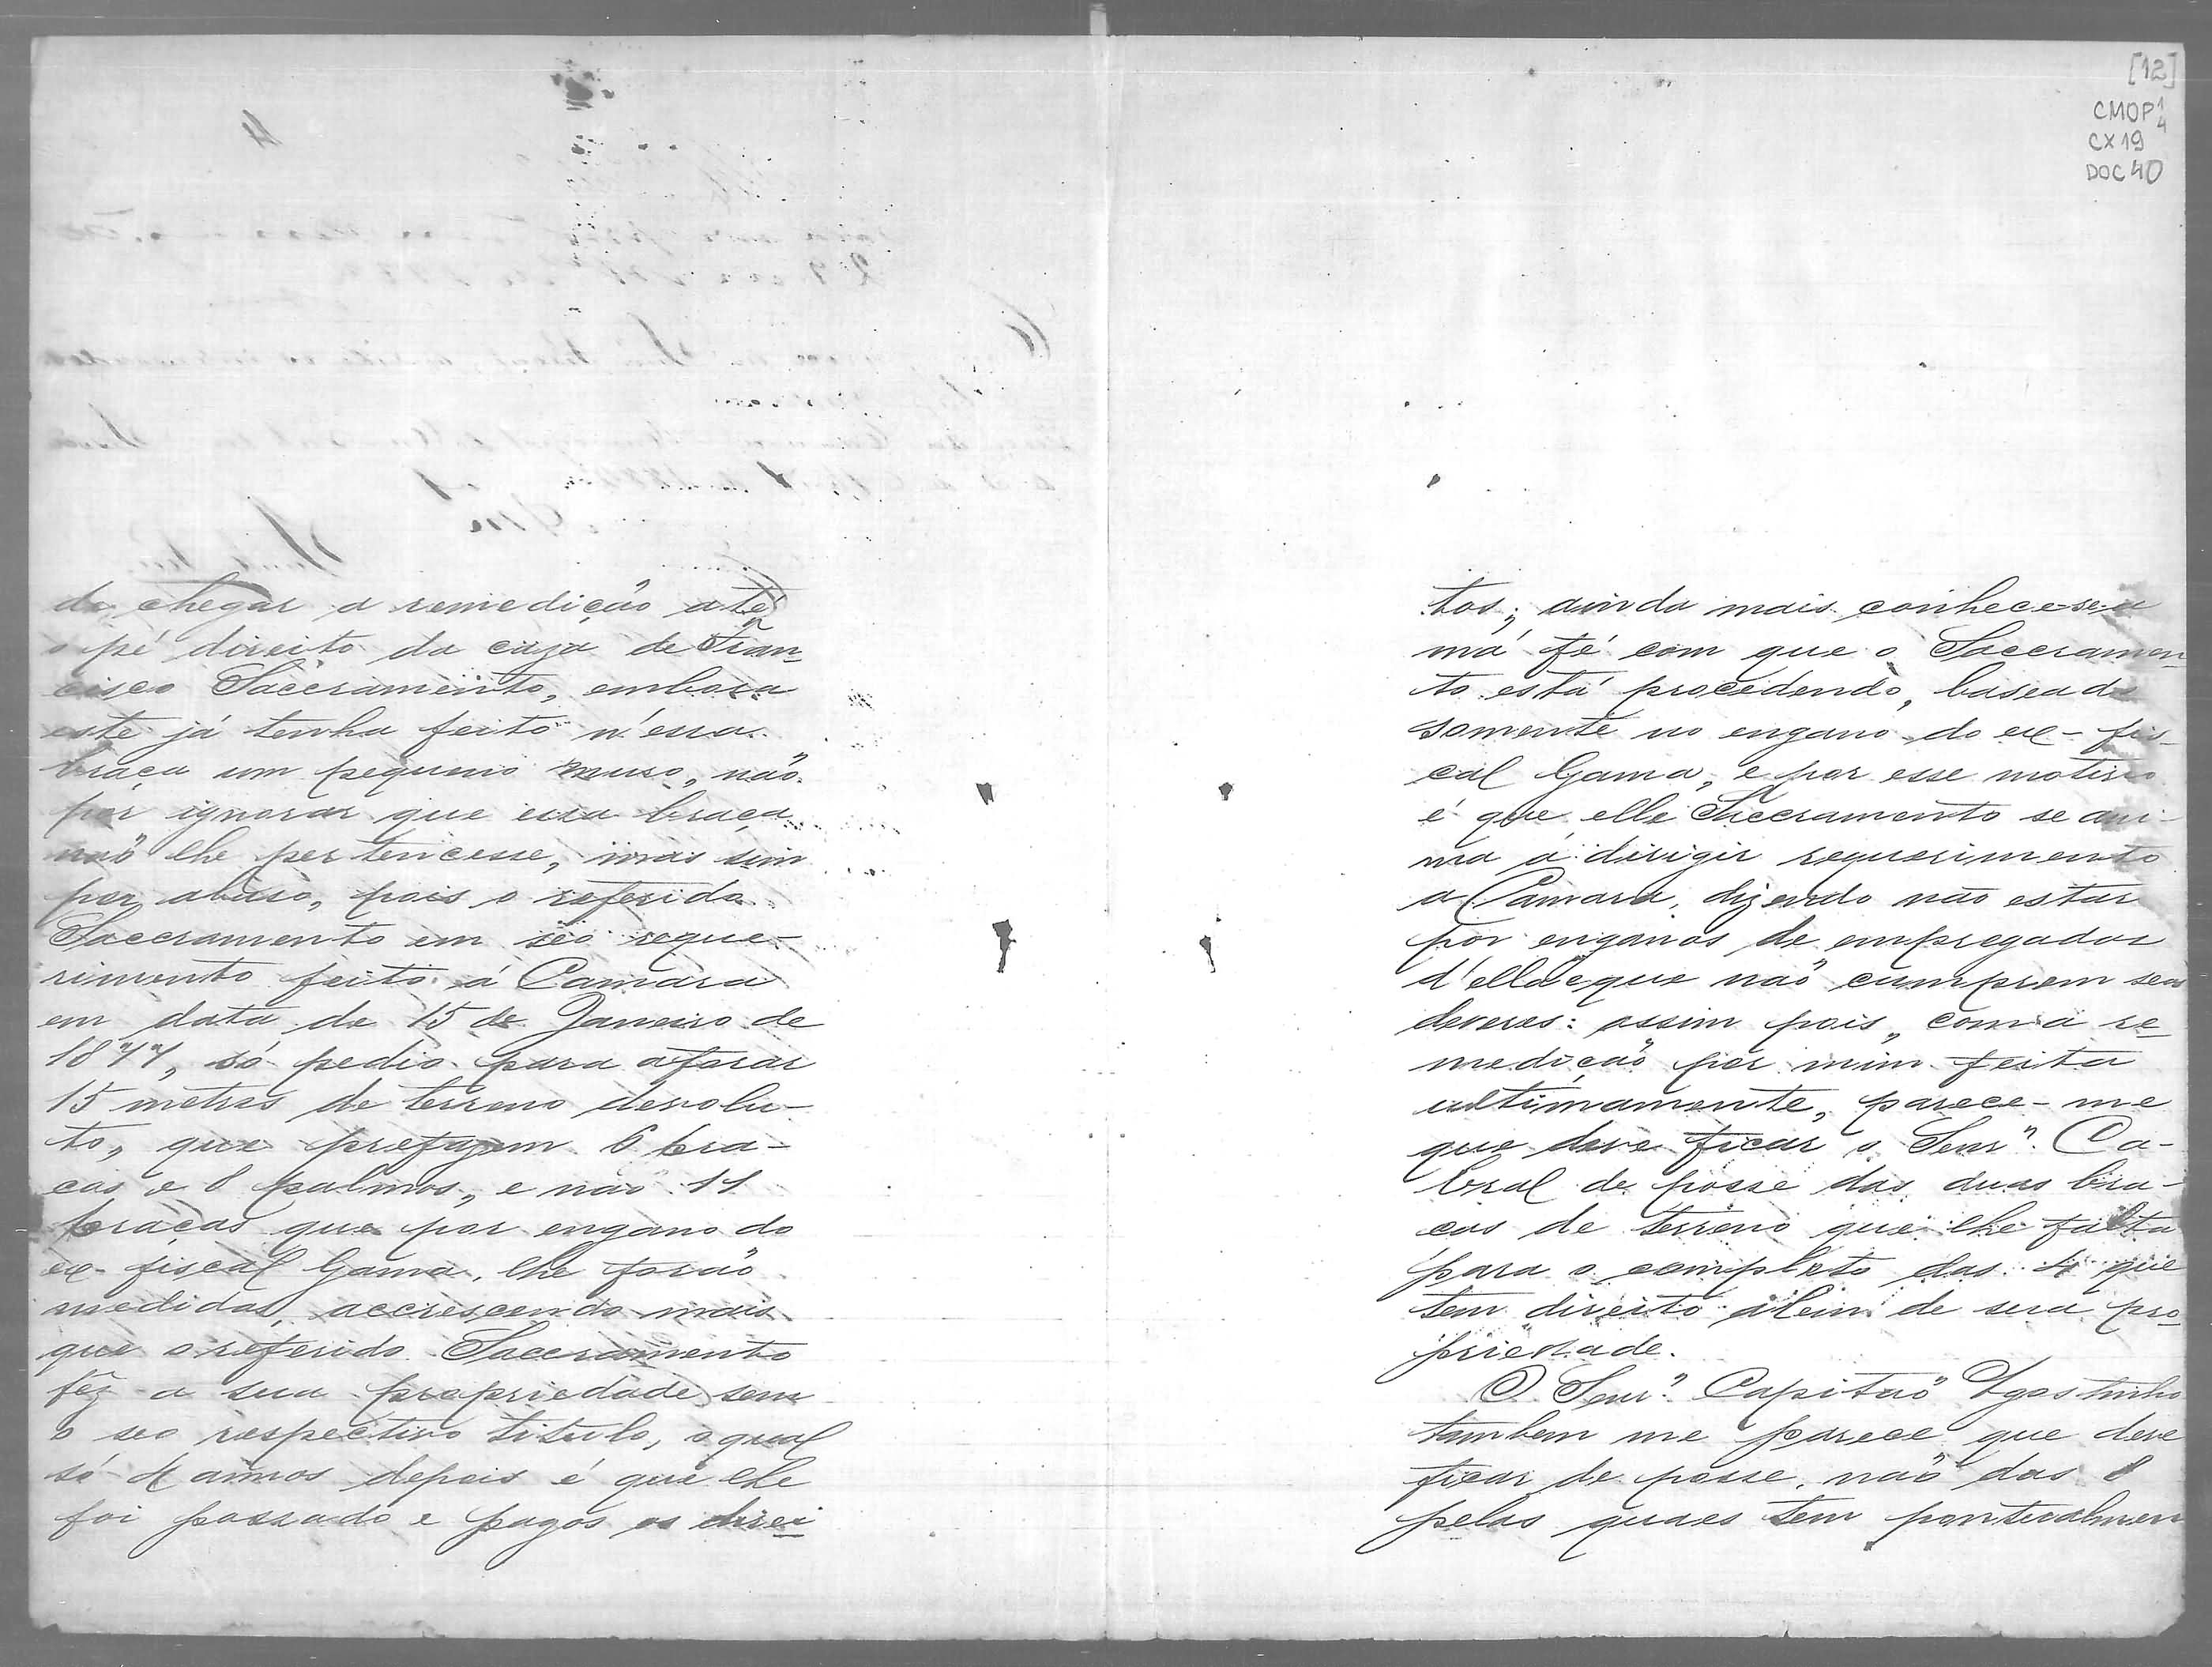 de chegar a remedição até
o pé direito da caza de Fran-
cisco Saccramento, embora
este já tenha feito n'essa
braça um pequeno muro, não
por ignorar que essa braça
não lhe pertencesse, mas sim
por abuso, pois o referido
Saccramento em seo reque-
rimento feito á Camara
em data de 15 de Janeiro de
1877, só pedio para aforar
15 metros de terreno devolu-
to, que prefazem 6 bra-
ças e 8 palmos, e não 11
braças que por engano do
ex-fiscal Gama, lhe forão
medidas, accrescendo mais
que o referido Saccramento
fêz a sua propriedade sem
o seo respectivo titulo, o qual
só 4 annos depois é que lhe
foi passado e pagos os direi
[12]
CMOP 1/4
CX 19
DOC 40
tos; ainda mais conhece-se a
má fé com que o Saccramen-
to está procedendo, baseado
somente no engano do ex-fis-
cal Gama, e por esse motivo
é que elle Saccramento se ani-
ma a dirigir requerimento
a Camara, dizendo não estar
por enganos de empregados
d'ella que não cumprem seus
deveres: assim pois, com a re-
medição por mim feita
ultimamente, parece-me
que deve ficar o Senr. Ca-
bral de posse das duas bra-
ças de terreno que lhe falta
para o completo das 4 que
tem direito alem de sua pro-
priedade.
O Senr. Capitão Agostinho
tambem me parece que deve
ficar de posse, não das 8
pelas quaes tem pontualmen